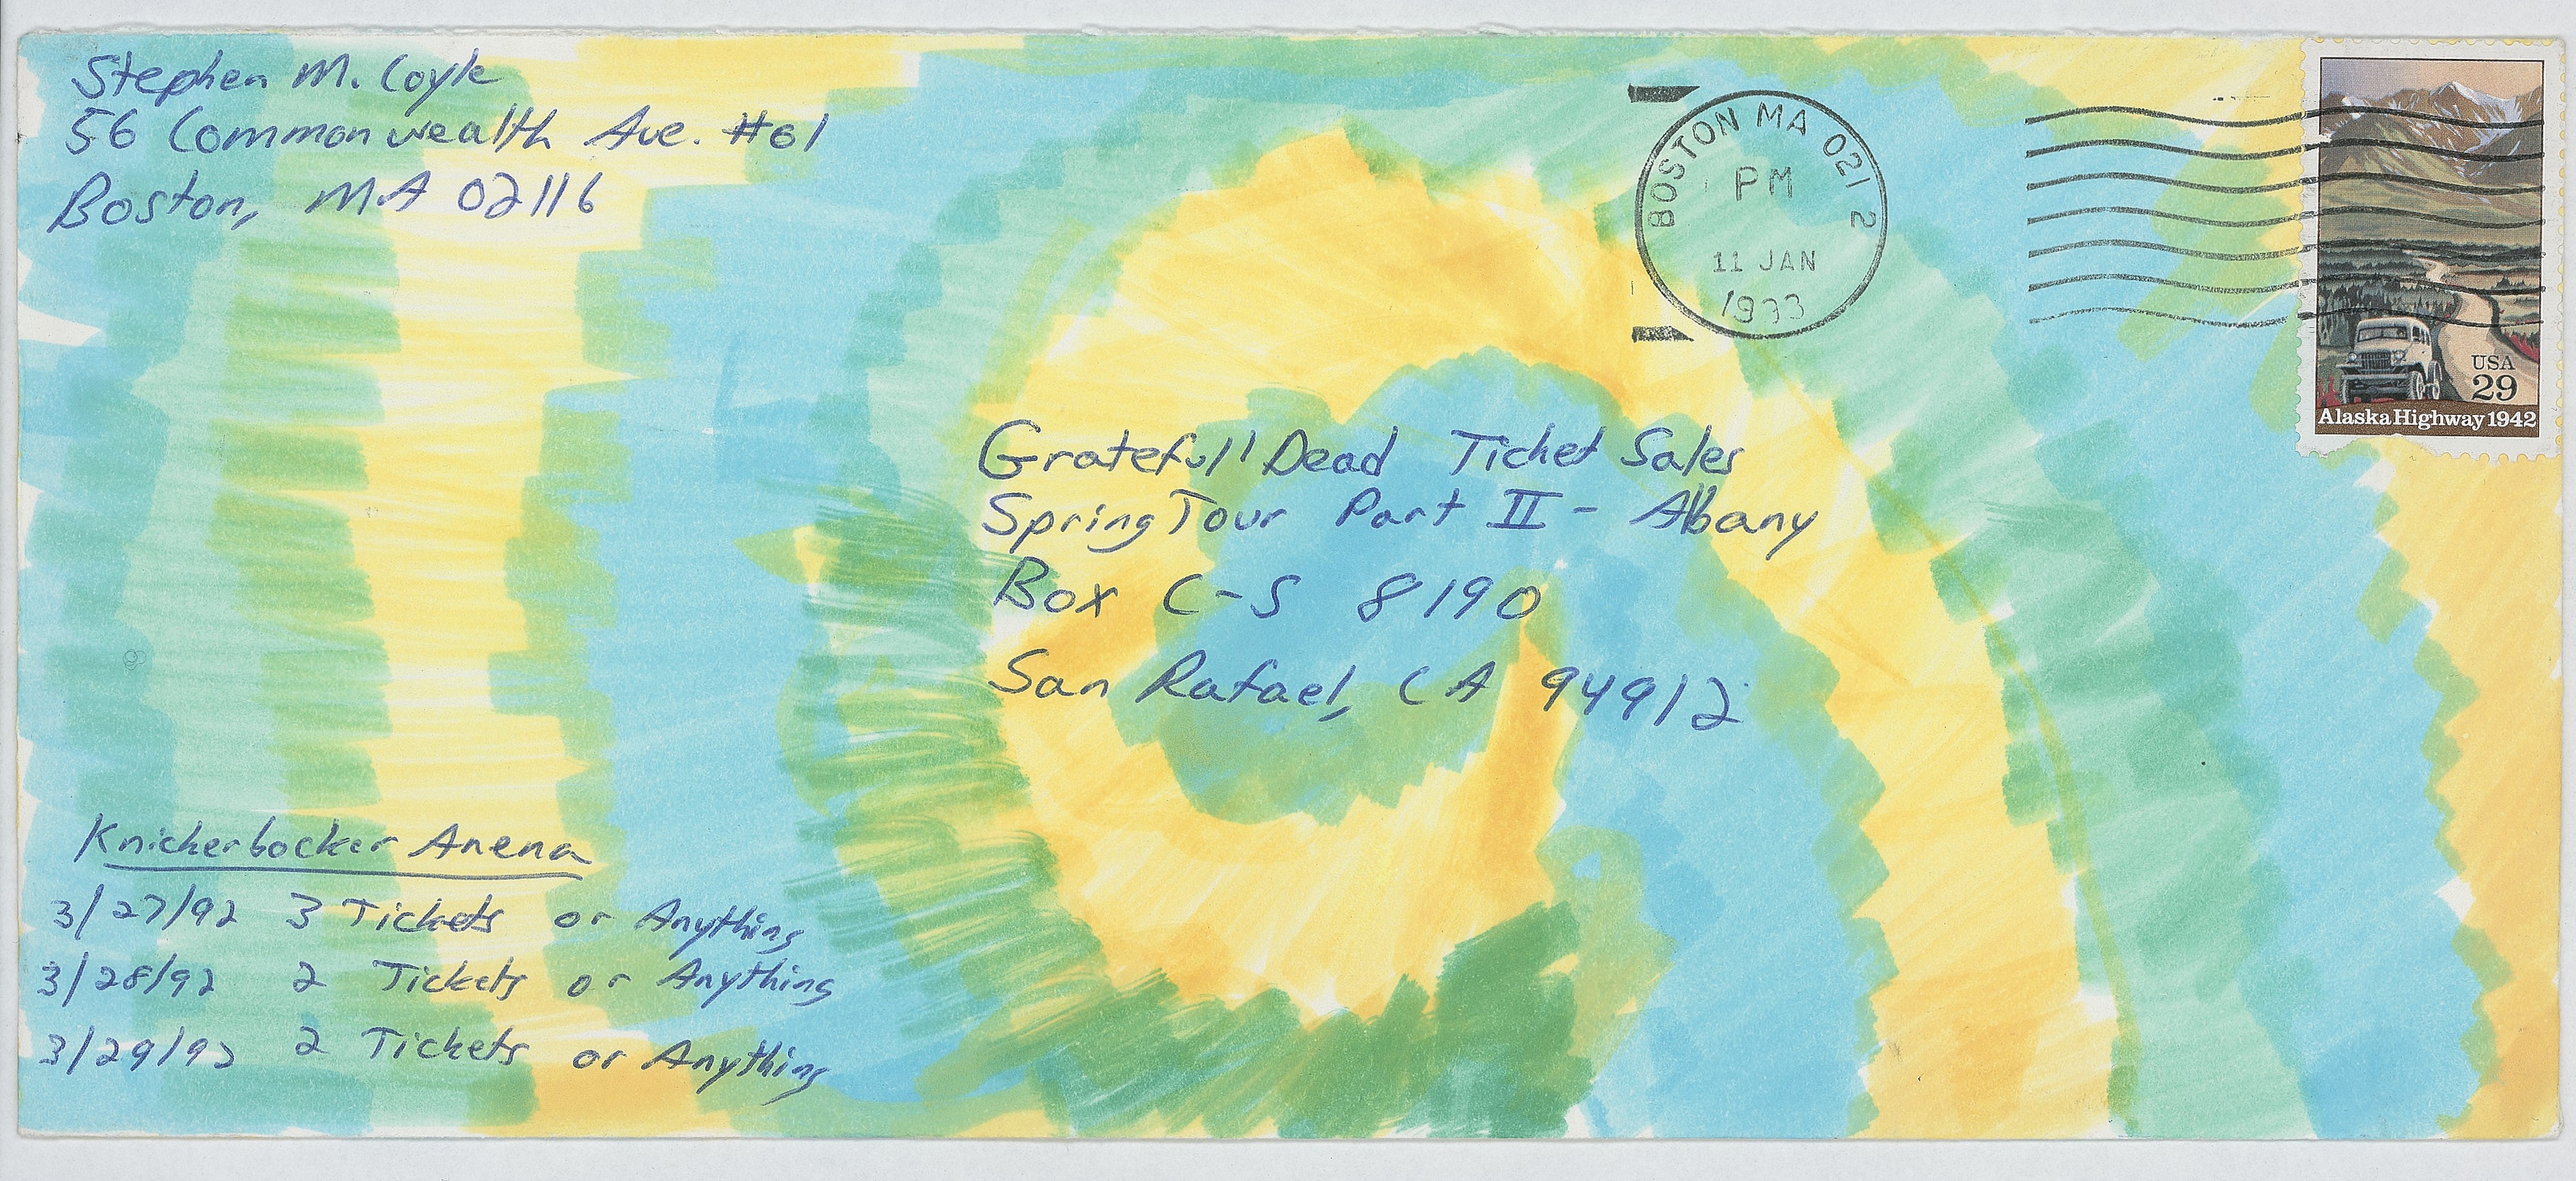 Stephen M. Coyle
56 Commonwealth Ave. #61
Boston, MA 02116
BOSTON MA 021 2
PM
11 JAN
1993
USA
29
Alaska Highway 1942
Grateful Dead Ticket Sales
Spring Tour Part II - Albany
Box C-S 8190
San Rafael, CA 94912
Knickerbocker Arena
3/27/92 3 Tickets or Anything
3/28/92 2 Tickets or Anything
3/29/92 2 Tickets or Anything